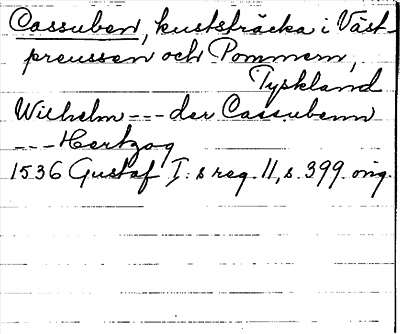 Cassuben, kuststräcka i Väst-
preussen och Pommern,
Tyskland
Wilhelm --- der Cassubenn
--- Hertzog
1536 Gustaf I:s reg. 11, s. 399. orig.